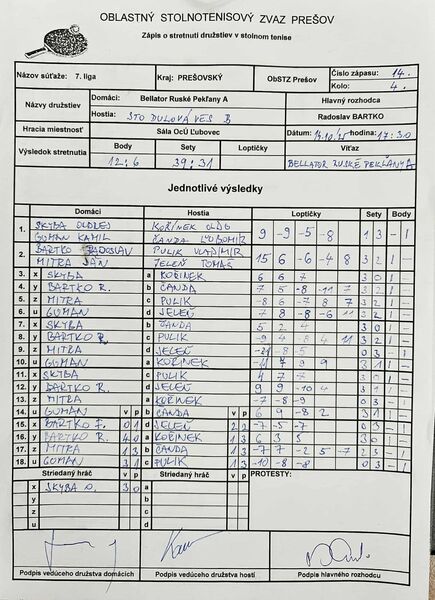 OBLASTNÝ STOLNOTENISOVÝ ZVAZ PREŠOV
Zápis o stretnutí družstiev v stolnom tenise
Názov súťaže: 7. liga Kraj: PREŠOVSKÝ ObSTZ Prešov Číslo zápasu: 14.
Kolo: 4.
Názvy družstiev Domáci: Bellator Ruské Pekľany A Hlavný rozhodca
Hostia: STO DULOVÁ VES B Radoslav BARTKO
Hracia miestnosť Sála OcÚ Ľubovec Dátum: hodina: 17:30
Výsledok stretnutia Body Sety Loptičky Víťaz
12:6 39:31 BELLATOR RUSKÉ PEKĽANY A
Jednotlivé výsledky
Domáci Hostia Loptičky Sety Body
1. SKYBA ONDREJ KOŘÍNEK OLDO 9 -9 -5 -8 1 3 - 1
GUMAN KAMIL ČANDA ĽUBOMÍR
2. BARTKO RADOSLAV PULIK VLADIMÍR 15 6 -6 -4 8 3 2 1
MITRA JÁN JELEŇ TOMÁŠ
3. x SKYBA a KOŘINEK 6 6 7 3 0 1
4. y BARTKO R. b ČANDA 7 5 -8 -11 7 3 2 1
5. z MITRA c PULIK -8 6 -7 8 7 3 2 1
6. u GUMAN d JELEŇ 7 8 -8 -6 11 3 2 1
7. x SKYBA b ČANDA 5 2 4 3 0 1
8. y BARTKO R c PULIK -9 4 8 4 11 3 2 1
9. z MITRA d JELEŇ -21 -8 -5 0 3 - 1
10. u GUMAN a KOŘINEK 7 9 9 3 1 1
11. x SKYBA c PULIK 4 7 7 3 0 1
12. y BARTKO R. d JELEŇ 9 9 -10 4 3 1 1
13. z MITRA a KOŘINEK -7 -8 -9 0 3 - 1
14. u GUMAN v p b ČANDA v p 6 9 -8 2 3 1 1
15. x BARTKO F. 0 1 d JELEŇ 2 2 -7 -5 -7 0 3 - 1
16. y BARTKO R. 4 0 a KOŘINEK 1 3 6 3 5 3 0 1
17. z MITRA 1 3 b ČANDA 1 3 -7 7 -2 5 -7 2 3 - 1
18. u GUMAN 3 1 c PULIK 1 3 -10 -8 -8 0 3 - 1
Striedaný hráč v p Striedaný hráč v p PROTESTY:
x SKYBA O. 3 0 a
y b
z c
u d
Podpis vedúceho družstva domácich Podpis vedúceho družstva hostí Podpis hlavného rozhodcu